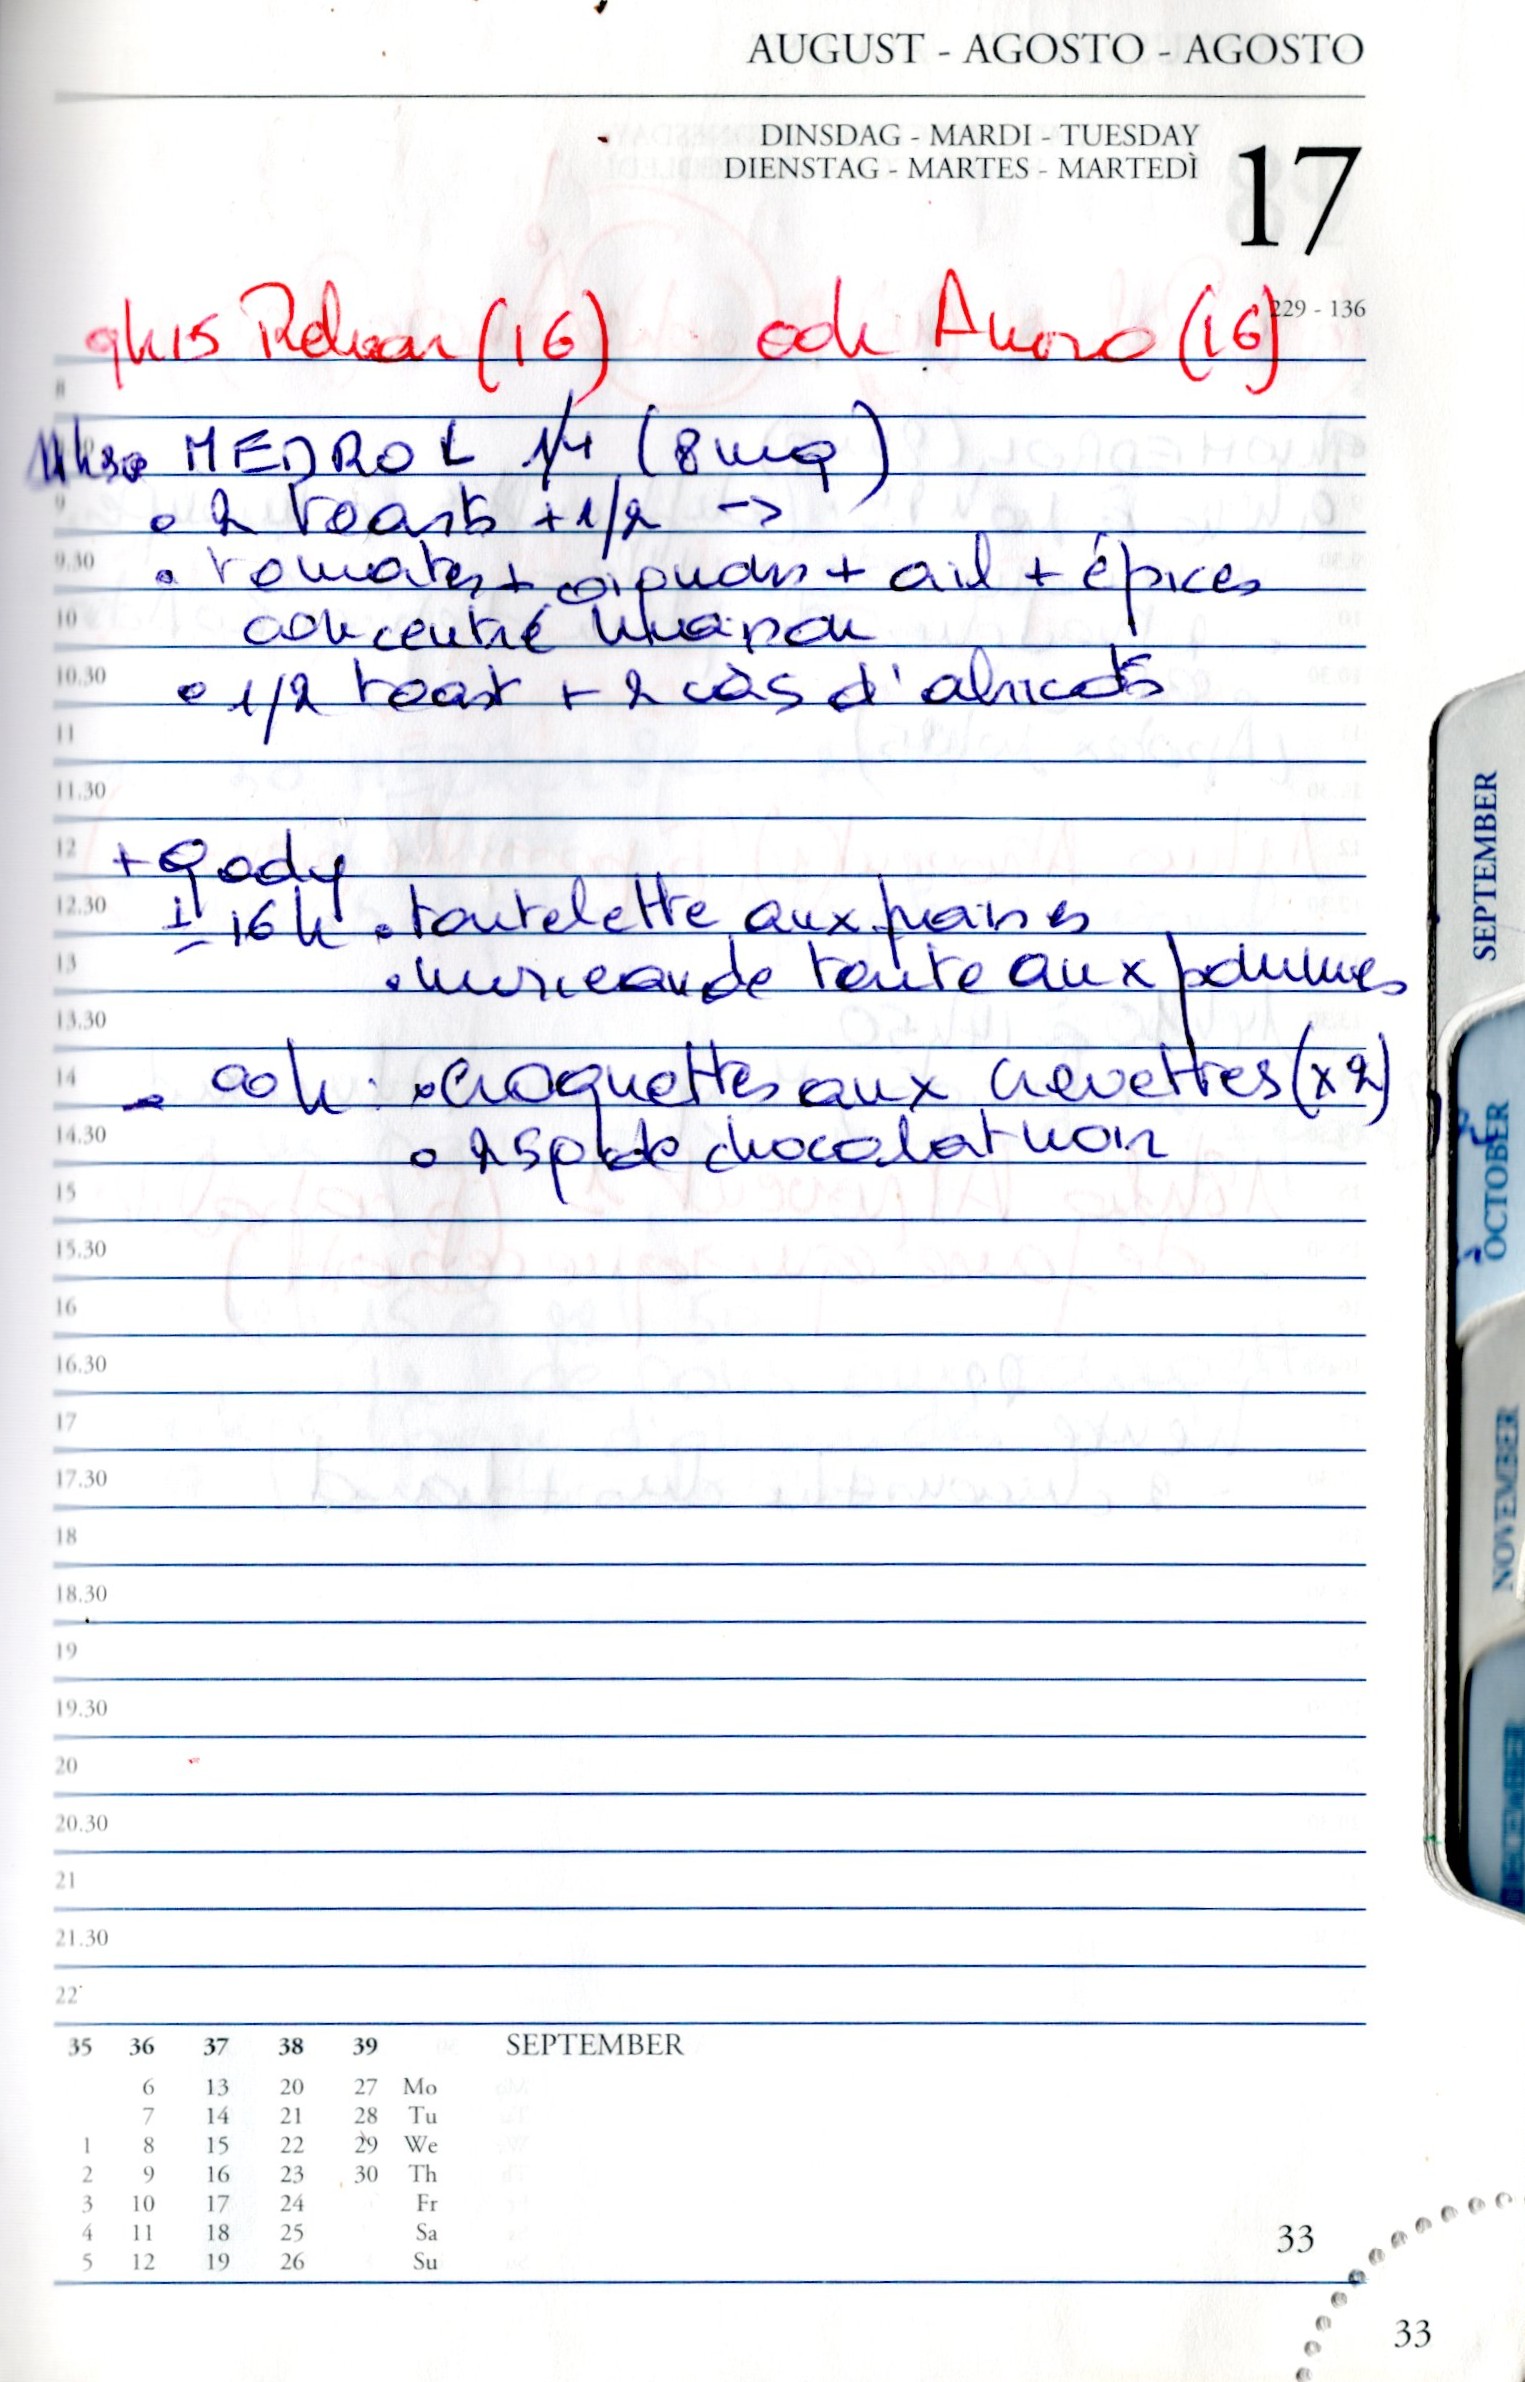 AUGUST - AGOSTO - AGOSTO
DINSDAG - MARDI - TUESDAY
DIENSTAG - MARTES - MARTEDÌ
17
229 - 136
9h15 (16) (16)
8
MEDROL 1/4 (8mg)
9
• 2 toasts + 1/2 ->
9.30
• tomates + oignons + ail + épices
10
concentré maison
10.30
• 1/2 toast + 2 càs d'abricots
11
11.30
12
+ Gady
12.30
± 16h • tartelette aux fraises
13
• morceau de tarte aux pommes
13.30
14
- 00h: • croquettes aux crevettes (x2)
14.30
• chocolat noir
15
15.30
16
16.30
17
17.30
18
18.30
19
19.30
20
20.30
21
21.30
22
35 36 37 38 39 SEPTEMBER
6 13 20 27 Mo
7 14 21 28 Tu
1 8 15 22 29 We
2 9 16 23 30 Th
3 10 17 24 Fr
4 11 18 25 Sa
5 12 19 26 Su
33
33
SEPTEMBER
OCTOBER
NOVEMBER
DECEMBER